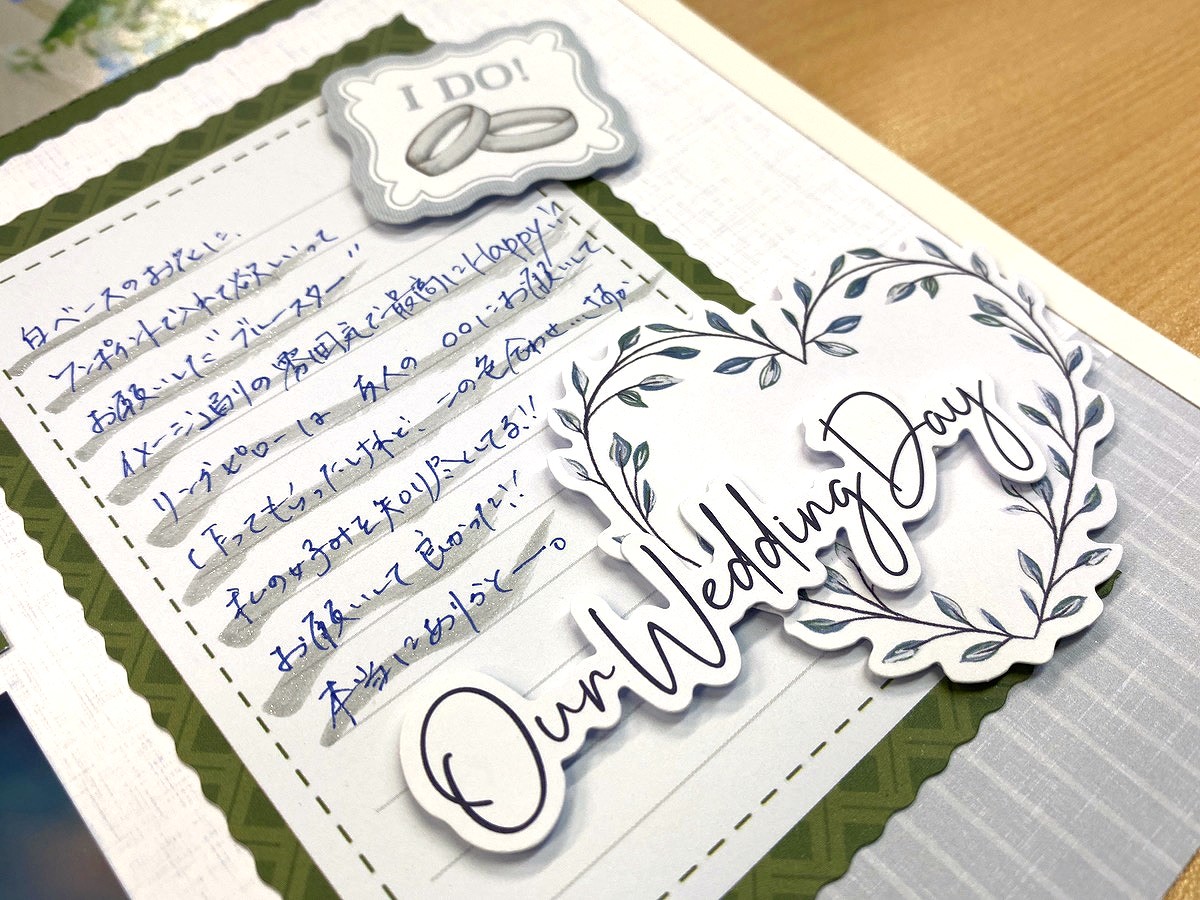 I DO!
白ベースのお花に、
ワンポイントで入れて欲しいって
お願いした”ブルースター”
イメージ通りの雰囲気で最高にHappy!!
リングピローは 友人の ○○にお願いして
作ってもらったけれど、この色合わせ…さすが
私の女子叶を知り尽としてる!!
お願いして良かった!!
本当にありがとー。
Our Wedding Day